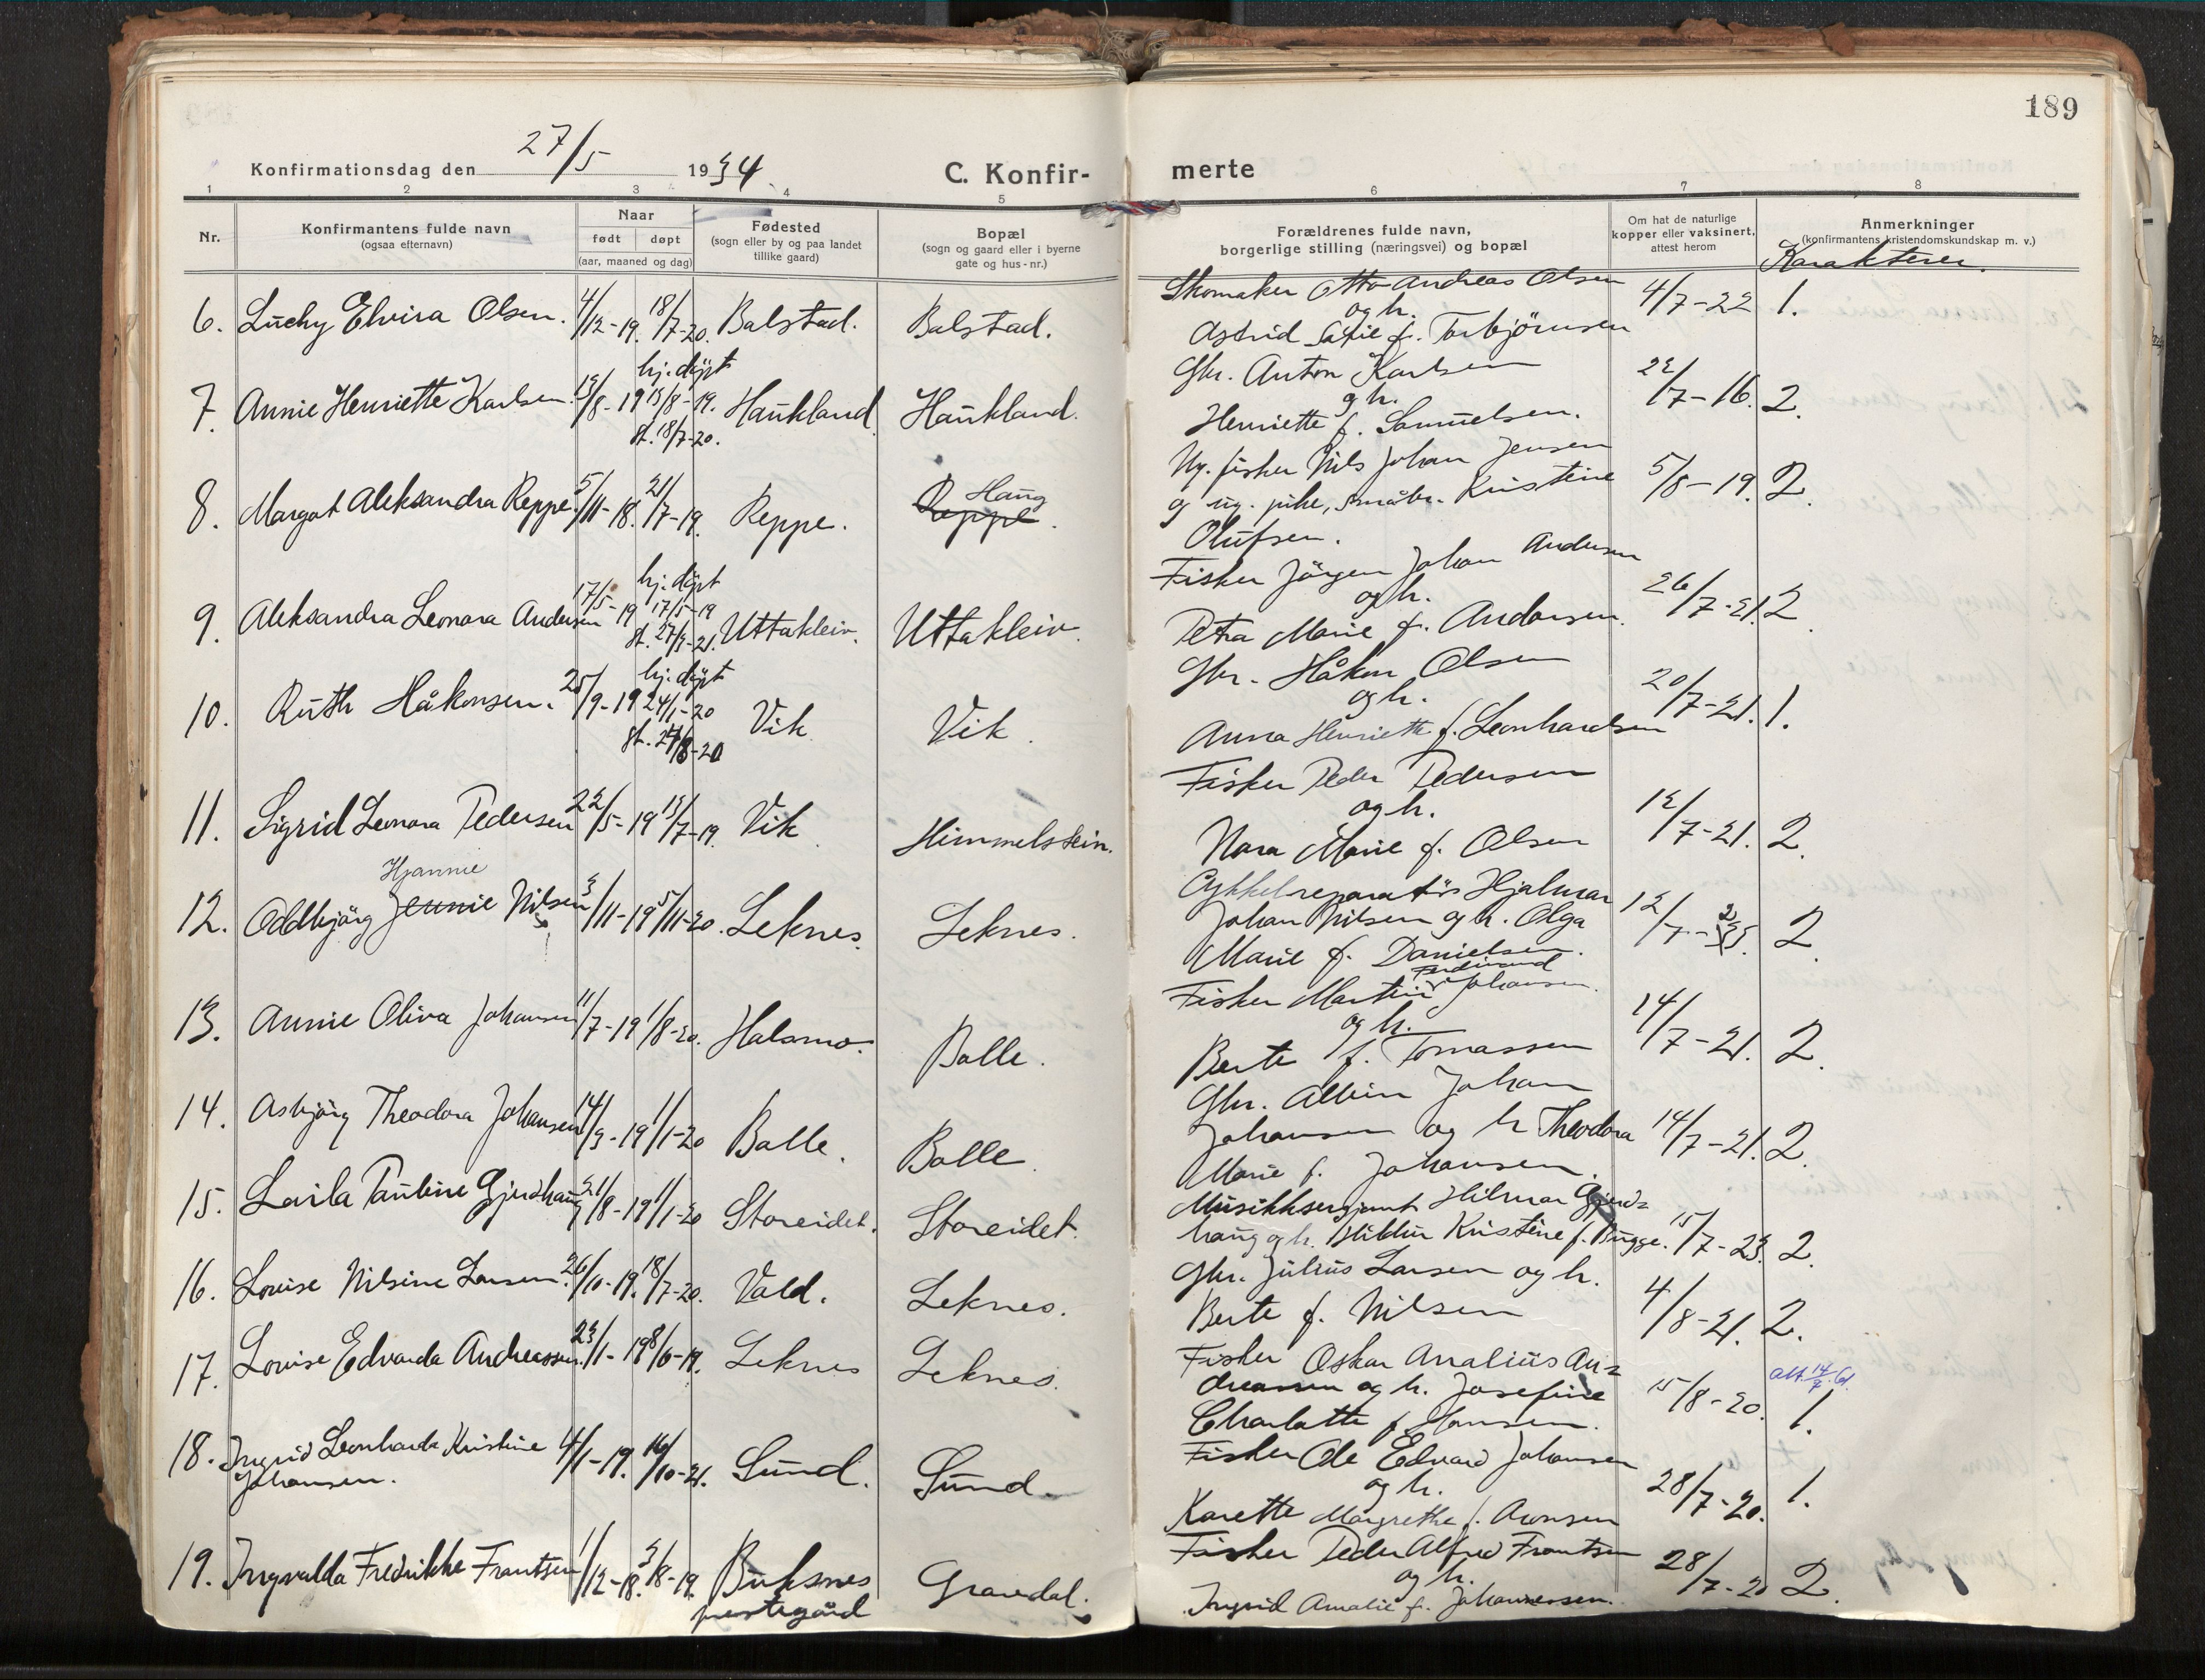 189
Konfirmationsdag den 27/5 1934
C. Konfir-
merte
1 2 3 4 5 6 7 8
Nr.
Konfirmantens fulde navn
(ogsaa efternavn)
Naar
født døpt
(aar, maaned og dag)
Fødested
(sogn eller by og paa landet
tillike gaard)
Bopæl
(sogn og gaard eller i byerne
gate og hus-nr.)
Forældrenes fulde navn,
borgerlige stilling (næringsvei) og bopæl
Om hat de naturlige
kopper eller vaksinert,
attest herom
Anmerkninger
(konfirmantens kristendomskundskap m. v.)
Karakterer.
6. Luchy Elvira Olsen. 4/12-19. 18/7-20. Balstad. Balstad.
Skomaker Otto Andreas Olsen
og h.
Astrid f. Torbjørnsen
4/7-22 1.
7. Annie Henriette Karlsen. 13/8-19 hj. döpt
15/8-19.
st. 18/7-20. Haukland Haukland.
Gbr. Anton Karlsen
og h.
Henriette f. Samuelsen.
22/7-16. 2.
8. Margot Aleksandra Reppe. 5/11-18. 21/7-19. Reppe. Reppe Haug.
Ug. fisker Nils Johan Jensen
og ug. pike, småbr. Kristine
Olufsen.
5/8-19. 2.
9. Aleksandra Leonora Andersen 17/5-19 hj. döpt
17/5-19
st. 27/3-21. Uttakleiv. Uttakleiv.
Fisker Jörgen Johan Andersen
og h.
Petra Marie f. Andersen.
26/7-21. 2.
10. Ruth Håkonsen. 25/9-19 hj. döpt
24/1-20
st. 24/8-20 Vik Vik.
Gbr. Håkon Olsen
og h.
Anna Henriette f. Leonhardsen
20/7-21. 1.
11. Sigrid Leonora Pedersen 22/5-19 13/7-19. Vik Himmelstein.
Fisker Peder Pedersen
og h.
Nora Marie f. Olsen
12/7-21. 2.
12. Oddbjörg Jennie Hjannie Nilsen 3/11-19 5/11-20. Leknes. Leknes.
Cykkelreparatör Hjalmar
Johan Nilsen og h. Olga
Marie f. Danielsen.
12/7- 2.
13. Annie Oliva Johansen 11/7-19 1/8-20. Halsmo. Bolle.
Fisker Martin Ferdinand Johansen.
og h.
Berte f. Tomassen
14/7-21. 2.
14. Asbjörg Theodora Johansen 14/9-19 1/1-20 Bolle. Bolle.
Gbr. Albin Johan
Johansen og h Theodora
Marie f. Johansen.
14/7-21. 2.
15. Laila Pauline Gjerdhaug 21/8-19 1/1-20 Storeidet. Storeidet.
Musikksersjant Hilmar Gjerd=
haug og h. Kristine f. Bugge.
15/7-23. 2.
16. Lovise Nilsine Larsen. 26/10-19. 18/7-20. Vold. Leknes.
Gbr. Julius Larsen og h.
Berte f. Nilsen
4/8-21. 2.
17. Lovise Edvarda Andreassen. 23/1-19 8/6-19. Leknes Leknes.
Fisker Oskar Analius An=
dreassen og h. Josefine
Charlotte f. Hansen.
15/8-20. Att. 14/7-61. 1.
18. Ingrid Leonharda Kristine
Johansen. 4/1-19. 16/10-21. Sund. Sund.
Fisker Ole Edvard Johansen
og h.
Karette Margrethe f. Aronsen
28/7-20. 1.
19. Ingvalda Fredrikke Frantsen 1/12-18. 3/8-19. Buksnes
prestegård Gravdal.
Fisker Peder Alfred Frantsen
og h.
Ingrid Amalie f. Johannessen.
28/7-20 2.